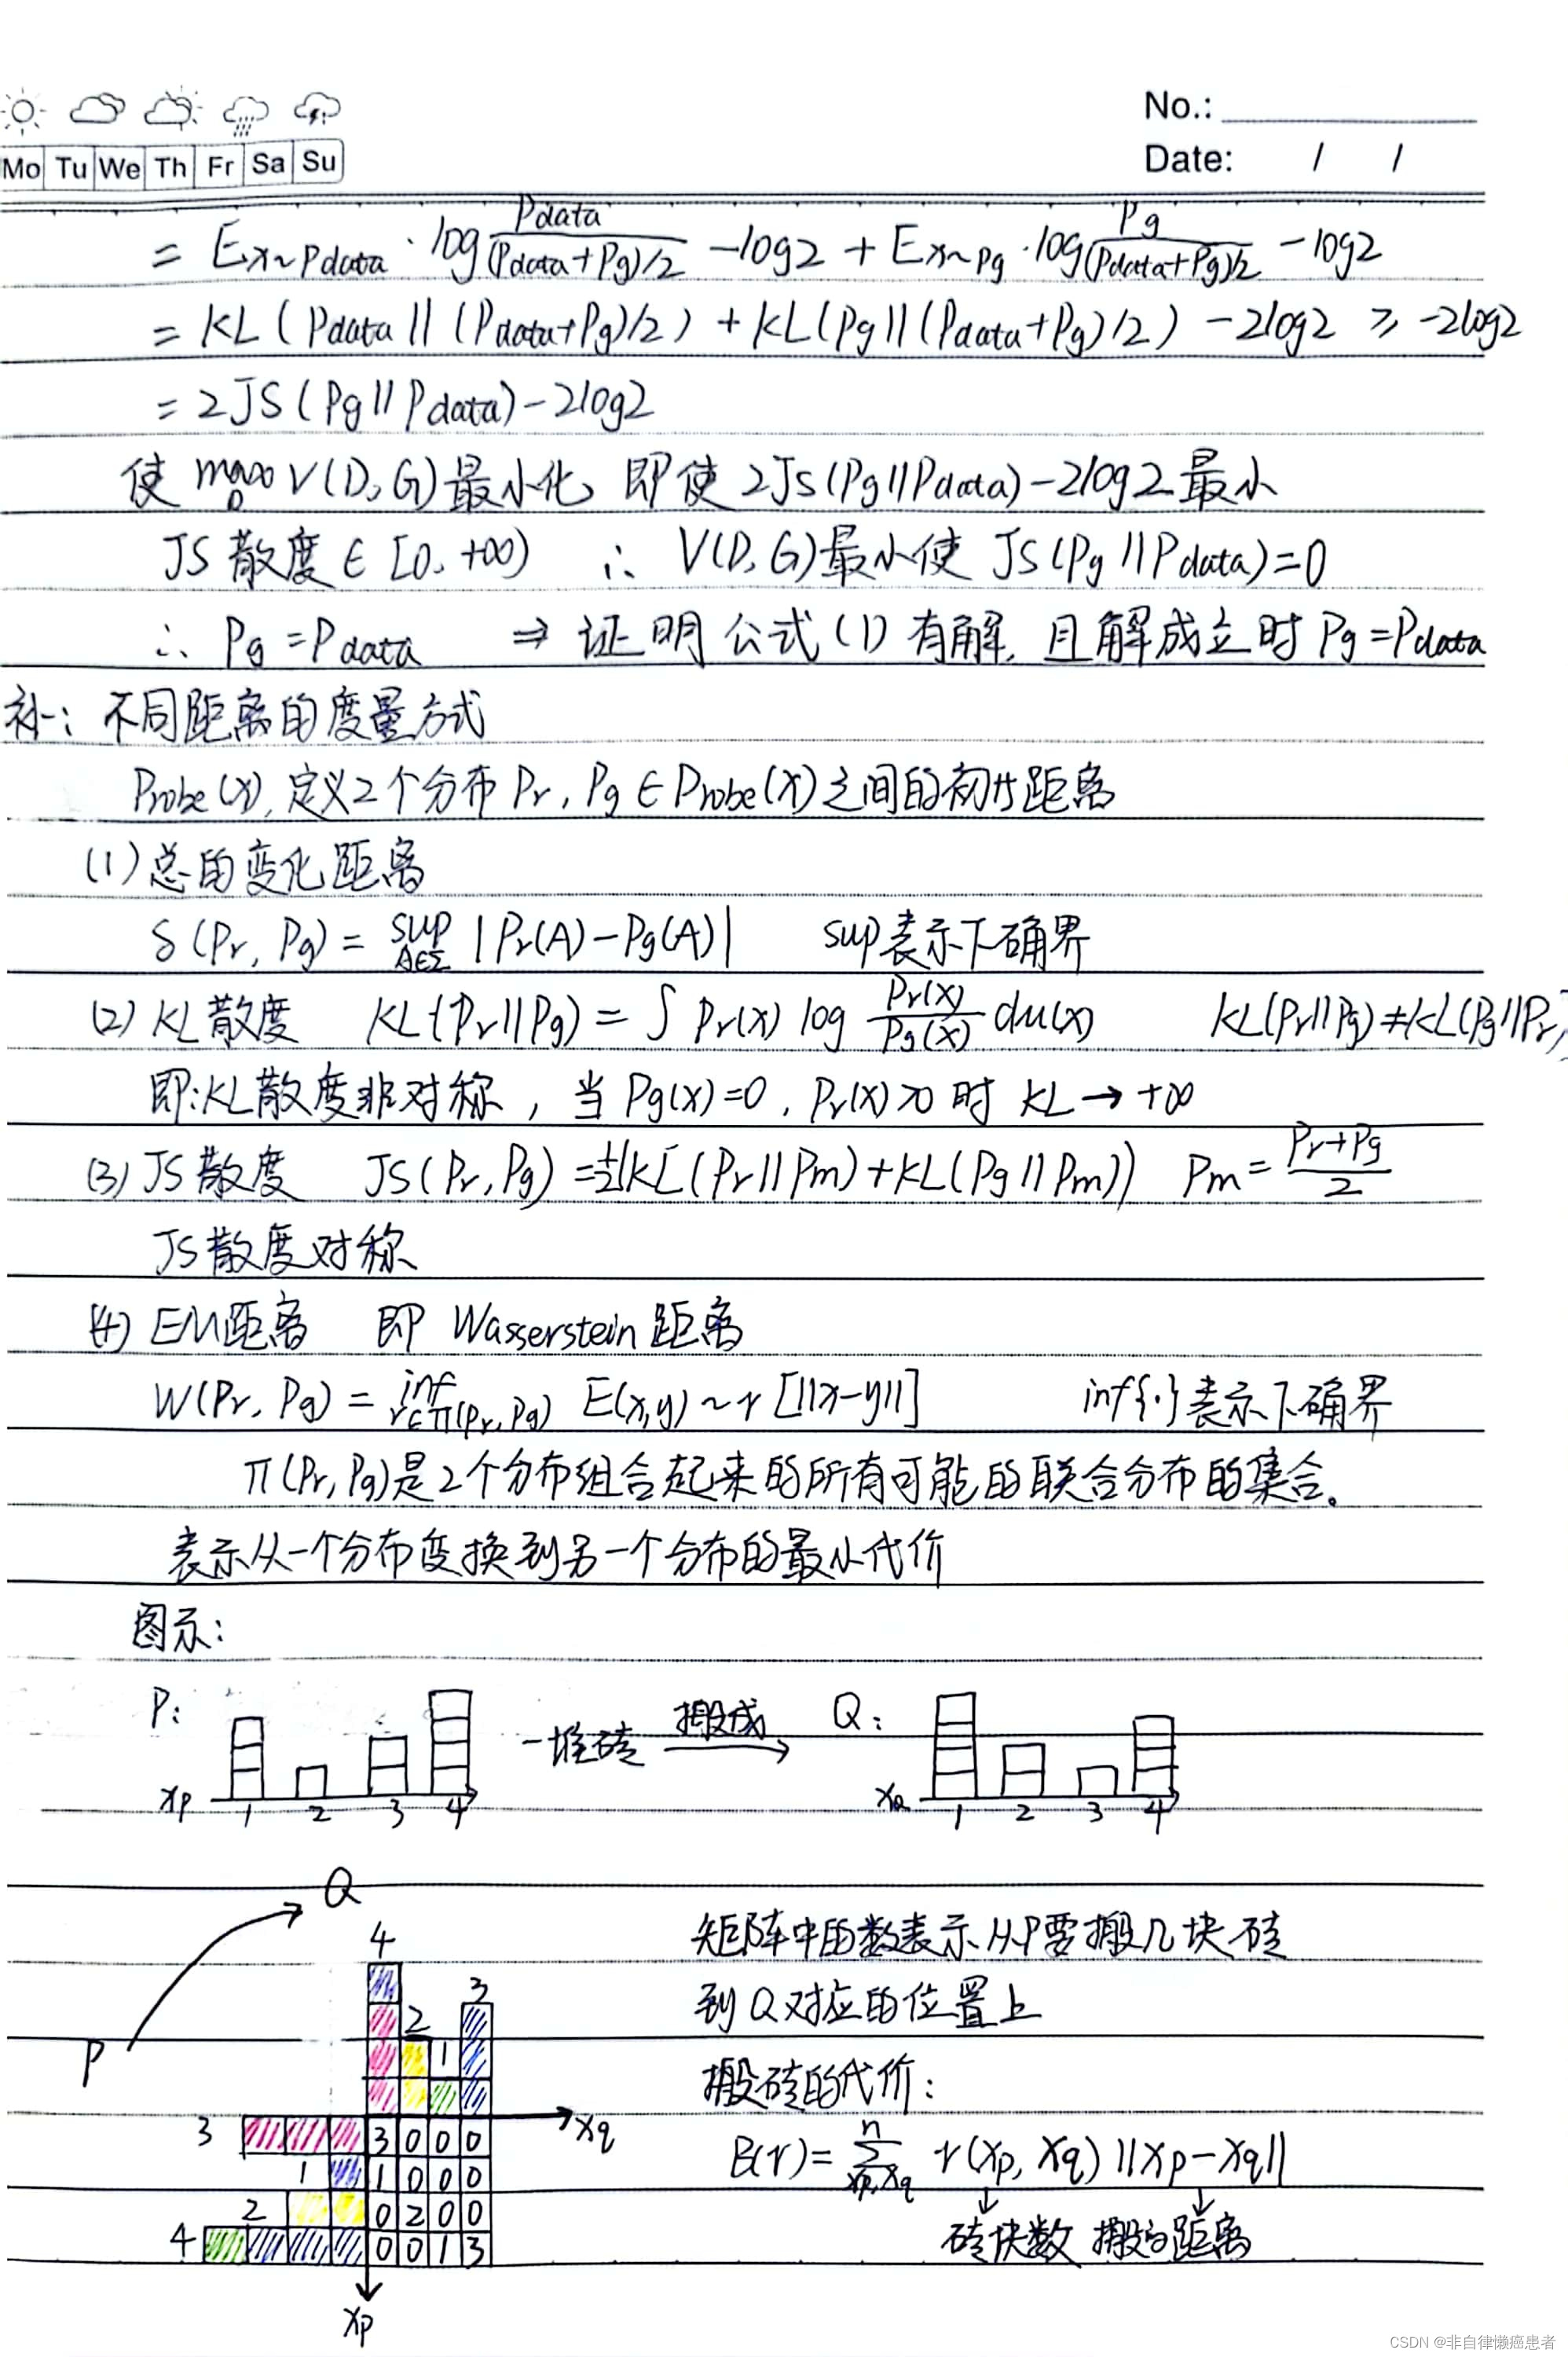 No.:
Mo Tu We Th Fr Sa Su
Date: / /
= E_{x~Pdata} · log Pdata/((Pdata+Pg)/2) - log2 + E_{x~Pg} · log Pg/((Pdata+Pg)/2) - log2
= KL(Pdata || (Pdata+Pg)/2) + KL(Pg || (Pdata+Pg)/2) - 2log2 ≥ -2log2
= 2JS(Pg || Pdata) - 2log2
使 max_D V(D,G)最小化, 即使 2JS(Pg||Pdata)-2log2最小
JS散度∈[0, +∞) ∴ V(D,G)最小使 JS(Pg||Pdata)=0
∴ Pg = Pdata ⇒ 证明公式(1)有解, 且解成立时 Pg=Pdata
补一: 不同距离的度量方式
Probe(x), 定义2个分布 Pr, Pg ∈ Probe(x)之间的初步距离
(1) 总的变化距离
δ(Pr, Pg) = sup_{A∈Σ} |Pr(A)-Pg(A)| sup表示下确界
(2) KL散度 KL(Pr||Pg) = ∫ Pr(x) log Pr(x)/Pg(x) du(x) KL(Pr||Pg)≠KL(Pg||Pr)
即:KL散度非对称, 当 Pg(x)=0, Pr(x)>0 时 KL → +∞
(3) JS散度 JS(Pr, Pg) = ½(KL(Pr||Pm)+KL(Pg||Pm)) Pm = (Pr+Pg)/2
JS散度对称
(4) EM距离 即 Wasserstein距离
W(Pr, Pg) = inf_{r∈Π(Pr,Pg)} E(x,y)~r [||x-y||] inf{·}表示下确界
π(Pr, Pg)是2个分布组合起来的所有可能的联合分布的集合。
表示从一个分布变换到另一个分布的最小代价
图示:
P: 一堆砖 搬成 Q:
xp 1 2 3 4 xQ 1 2 3 4
Q
4 矩阵中的数表示从P要搬几块砖
3 到Q对应的位置上
2
P 1 搬砖的代价:
xq
3 3 0 0 0 B(r) = Σ^n_{xp,xq} r(xp, xq) ||xp-xq||
1 1 0 0 0
2 0 2 0 0 砖块数 搬的距离
4 0 0 1 3
xp
CSDN @非自律懒癌患者